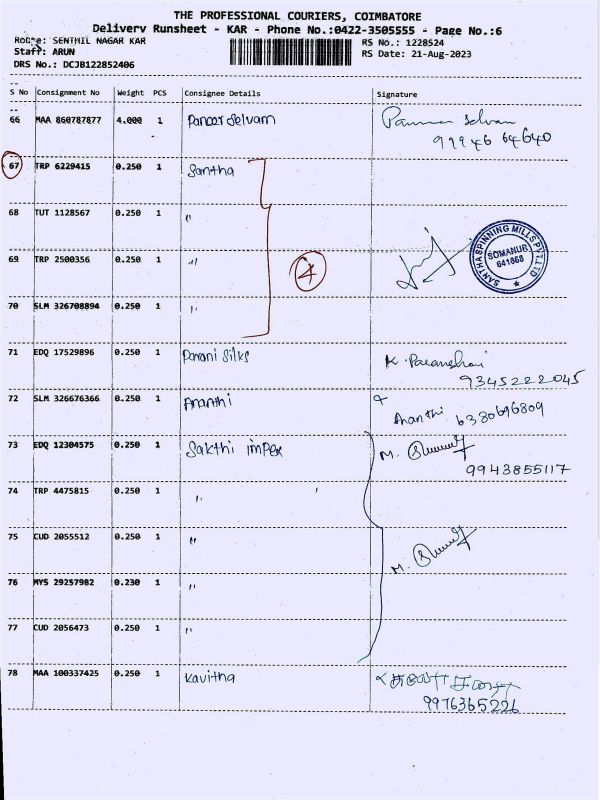 THE PROFESSIONAL COURIERS, COIMBATORE
Delivery Runsheet - KAR - Phone No.:0422-3505555 - Page No.:6
Route: SENTHIL NAGAR KAR RS No.: 1228524
Staff: ARUN RS Date: 21-Aug-2023
DRS No.: DCJB122852406
S No Consignment No Weight PCS Consignee Details Signature
66 MAA 860787877 4.000 1 Paneer Selvam
99946 64640
67 TRP 6229415 0.250 1 Santha
68 TUT 1128567 0.250 1 "
SANTHA SPINNING MILLS PVT LTD
SOMANUR
641668
69 TRP 2500356 0.250 1 "
4
70 SLM 326708894 0.250 1 "
71 EDQ 17529896 0.250 1 Parani Silks K.
9345222045
72 SLM 326676366 0.250 1 Ananthi
Ananthi 6380696809
73 EDQ 12304575 0.250 1 Sakthi impex M.
9943855117
74 TRP 4475815 0.250 1 "
75 CUD 2055512 0.250 1 "
M.
76 MYS 29257982 0.230 1 "
77 CUD 2056473 0.250 1 "
78 MAA 100337425 0.250 1 Kavitha
9976365226